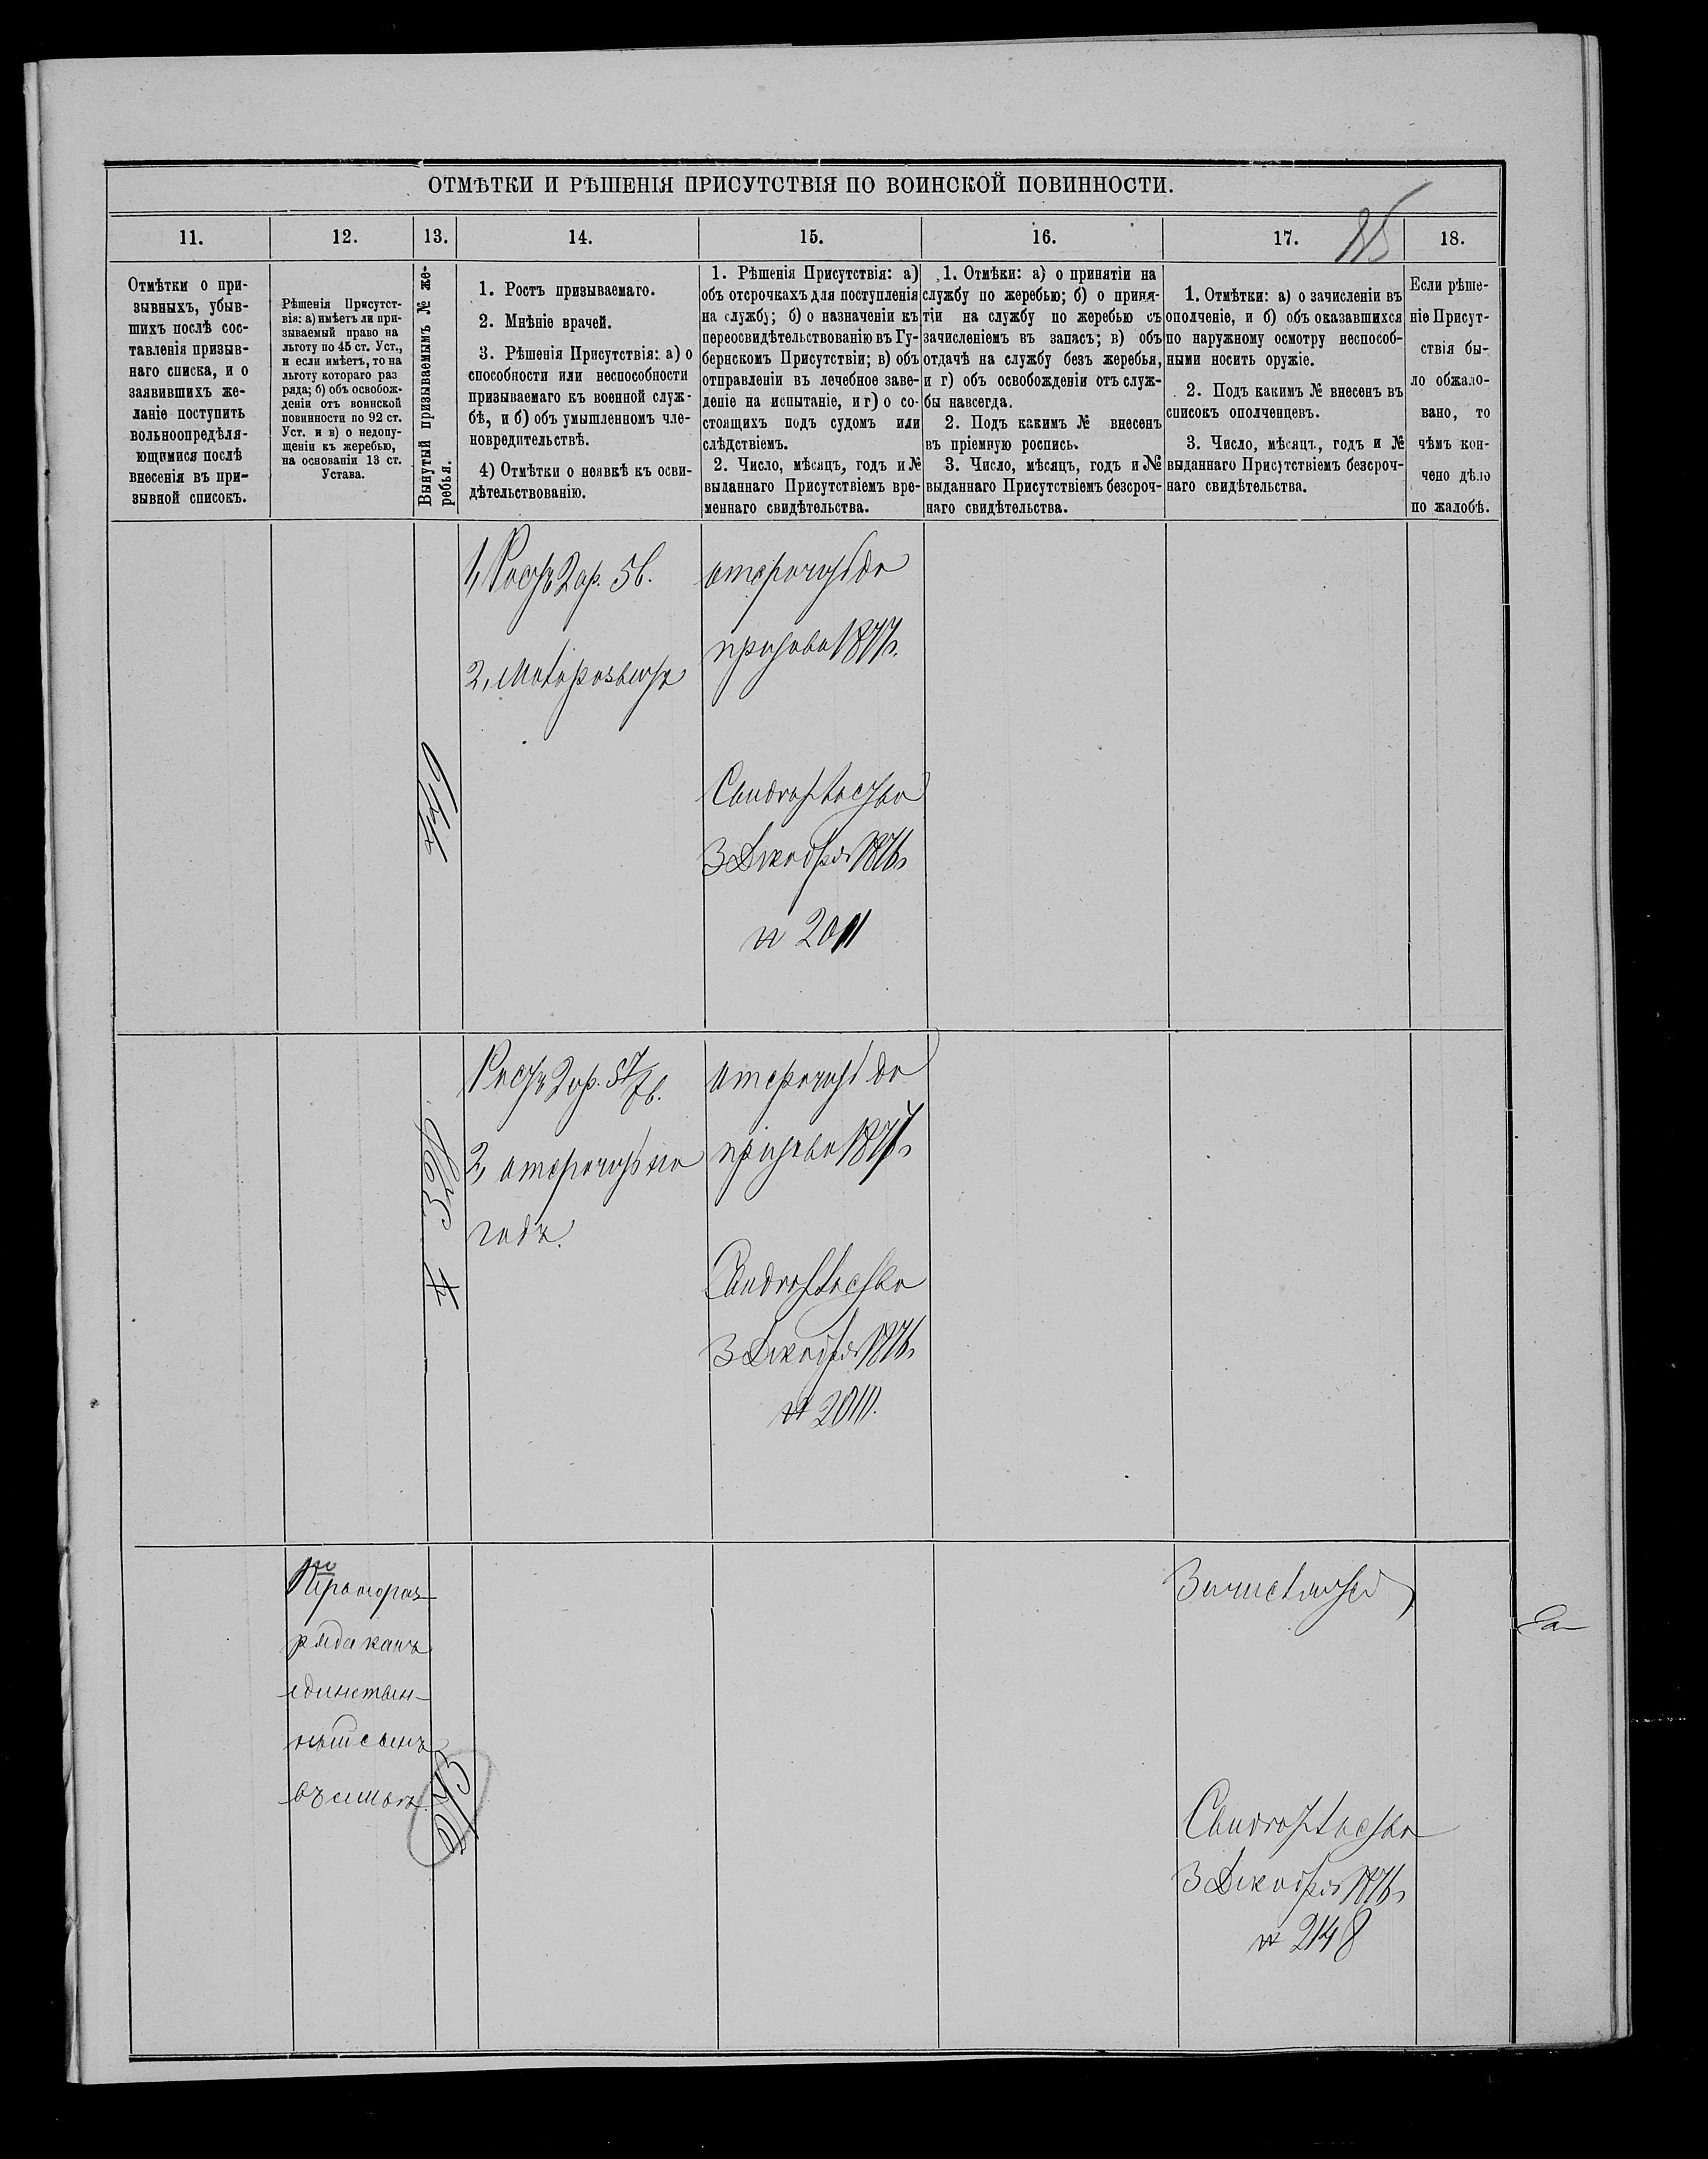 ОТМѢТКИ И РѢШЕНІЯ ПРИСУТСТВІЯ ПО ВОИНСКОЙ ПОВИННОСТИ.
11.
12.
13.
14.
15.
16.
17.
18.
Отмѣтки о при-
зывныхъ, убыв-
шихъ послѣ сос-
тавленія призыв-
наго списка, и о
заявившихъ же-
ланіе поступить
вольноопредѣля-
ющимися послѣ
внесенія въ при-
зывной списокъ.
Рѣшенія Присутст-
вія: а) имѣетъ ли при-
зываемый право на
льготу по 45 ст. Уст.,
и если имѣетъ, то на
льготу котораго раз
ряда; б) объ освобож-
деніи отъ воинской
повинности по 92 ст.
Уст. и в) о недопу-
щеніи къ жеребью,
на основаніи 13 ст.
Устава.
Вынутый призываемымъ № же-
ребья.
1. Ростъ призываемаго.
2. Мнѣніе врачей.
3. Рѣшенія Присутствія: а) о
способности или неспособности
призываемаго къ военной служ-
бѣ, и б) объ умышленномъ чле-
новредительствѣ.
4) Отмѣтки о неявкѣ къ осви-
дѣтельствованію.
1. Рѣшенія Присутствія: а)
объ отсрочкахъ для поступленія
на службу; б) о назначеніи къ
переосвидѣтельствованію въ Гу-
бернскомъ Присутствіи; в) объ
отправленіи въ лечебное заве-
деніе на испытаніе, и г) о со-
стоящихъ подъ судомъ или
слѣдствіемъ.
2. Число, мѣсяцъ, годъ и №
выданнаго Присутствіемъ вре-
меннаго свидѣтельства.
1. Отмѣки: а) о принятіи на
службу по жеребью; б) о приня-
тіи на службу по жеребью съ
зачисленіемъ въ запасъ; в) объ
отдачѣ на службу безъ жеребья,
и г) объ освобожденіи отъ служ-
бы навсегда.
2. Подъ какимъ № внесенъ
въ пріемную роспись.
3. Число, мѣсяцъ, годъ и №
выданнаго Присутствіемъ безсроч-
наго свидѣтельства.
1. Отмѣтки: а) о зачисленіи въ
ополченіе, и б) объ оказавшихся
по наружному осмотру неспособ-
ными носить оружіе.
2. Подъ какимъ № внесенъ въ
списокъ ополченцевъ.
3. Число, мѣсяцъ, годъ и №
выданнаго Присутствіемъ безсроч-
наго свидѣтельства.
Если рѣше-
ніе Присут-
ствія бы-
ло обжало-
вано, то
чѣмъ кон-
чено дѣло
по жалобѣ.
449
1, Ростъ 2 ар. 5 в.
2,
отсрочить до
призыва 1877 г.
Свидѣтельство
3 Декабря 1876 г.
№ 2011
328
Ростъ 2 ар. 5 в.
2, отсрочить на
годъ.
отсрочить до
призыва 1877 г.
Свидѣтельство
3 Декабря 1876 г.
№ 2010.
Перваго раз-
ряда какъ
единствен-
ный сынъ
въ семьѣ.
273
Зачислить
Свидѣтельство
3 Декабря 1876 г.
№ 2148